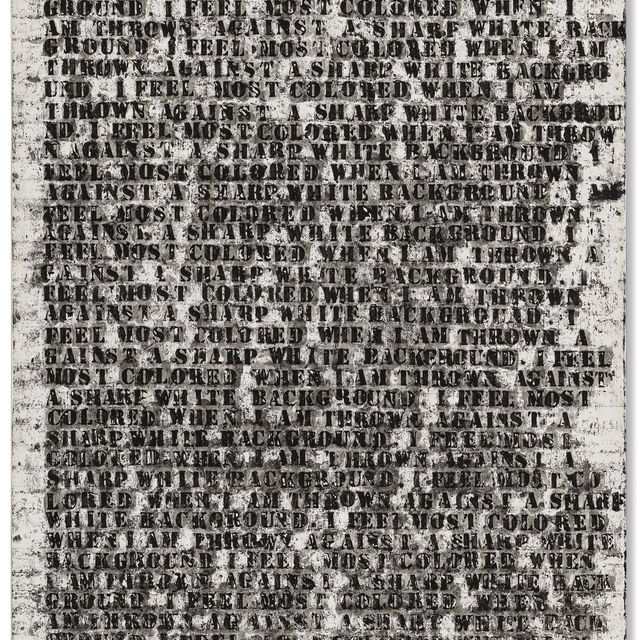 GROUND I FEEL MOST COLORED WHEN I
AM THROWN AGAINST A SHARP WHITE BACK
GROUND I FEEL MOST COLORED WHEN I AM
THROWN AGAINST A SHARP WHITE BACKGRO
UND I FEEL MOST COLORED WHEN I AM
THROWN AGAINST A SHARP WHITE BACKGROU
ND I FEEL MOST COLORED WHEN I AM THROW
N AGAINST A SHARP WHITE BACKGROUND I
FEEL MOST COLORED WHEN I AM THROWN
AGAINST A SHARP WHITE BACKGROUND I AM
FEEL MOST COLORED WHEN I AM THROWN
AGAINST A SHARP WHITE BACKGROUND I
FEEL MOST COLORED WHEN I AM THROWN A
GAINST A SHARP WHITE BACKGROUND I
FEEL MOST COLORED WHEN I AM THROWN
AGAINST A SHARP WHITE BACKGROUND I
FEEL MOST COLORED WHEN I AM THROWN A
GAINST A SHARP WHITE BACKGROUND I FEEL
MOST COLORED WHEN I AM THROWN AGAINST
A SHARP WHITE BACKGROUND I FEEL MOST
COLORED WHEN I AM THROWN AGAINST A
SHARP WHITE BACKGROUND I FEEL MOST
COLORED WHEN I AM THROWN AGAINST A
SHARP WHITE BACKGROUND I FEEL MOST CO
LORED WHEN I AM THROWN AGAINST A SHARP
WHITE BACKGROUND I FEEL MOST COLORED
WHEN I AM THROWN AGAINST A SHARP WHITE
BACKGROUND I FEEL MOST COLORED WHEN
I AM THROWN AGAINST A SHARP WHITE BACK
GROUND I FEEL MOST COLORED WHEN I
AM THROWN AGAINST A SHARP WHITE BACK